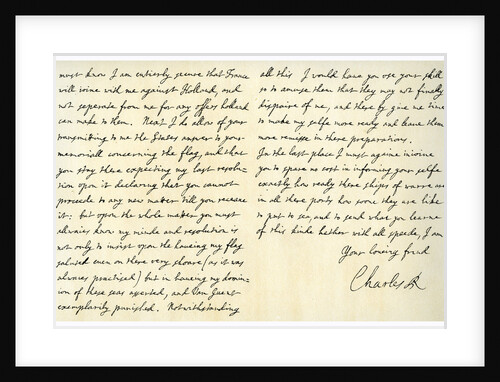 must know I am entierly secure that France
will joine with me against Holland, and
not seperate from me for any offers holland
can make to them. Next I do allow of your
transmitting to me the States answer to your
memoriall concerning the flag, and that
you stay there expecting my last resolu-
tion upon it declaring that you cannot
proceede to any new matter till you receave
it; but upon the whole matter you must
allwaies know my minde and resolution is
not only to insist upon the haveing my flag
saluted even on there very shoare (as it was
alwaies practised) but in haveing my domin-
ion of these seas asserted, and Van Guent
exemplarily punished. Notwithstanding
all this I would have you use your skill
so to amuse them that they may not finally
dispaire of me, and therby give me time
to make my selfe more ready and leave them
more remisse in there preparations.
In the last place I must againe injoine
you to spare no cost in informing your selfe
exactly how ready there ships of warre are
in all there ports how soone they are like
to put to sea, and to send what you learne
of this kinde hether with all speede, I am
Your loving frend
Charles R